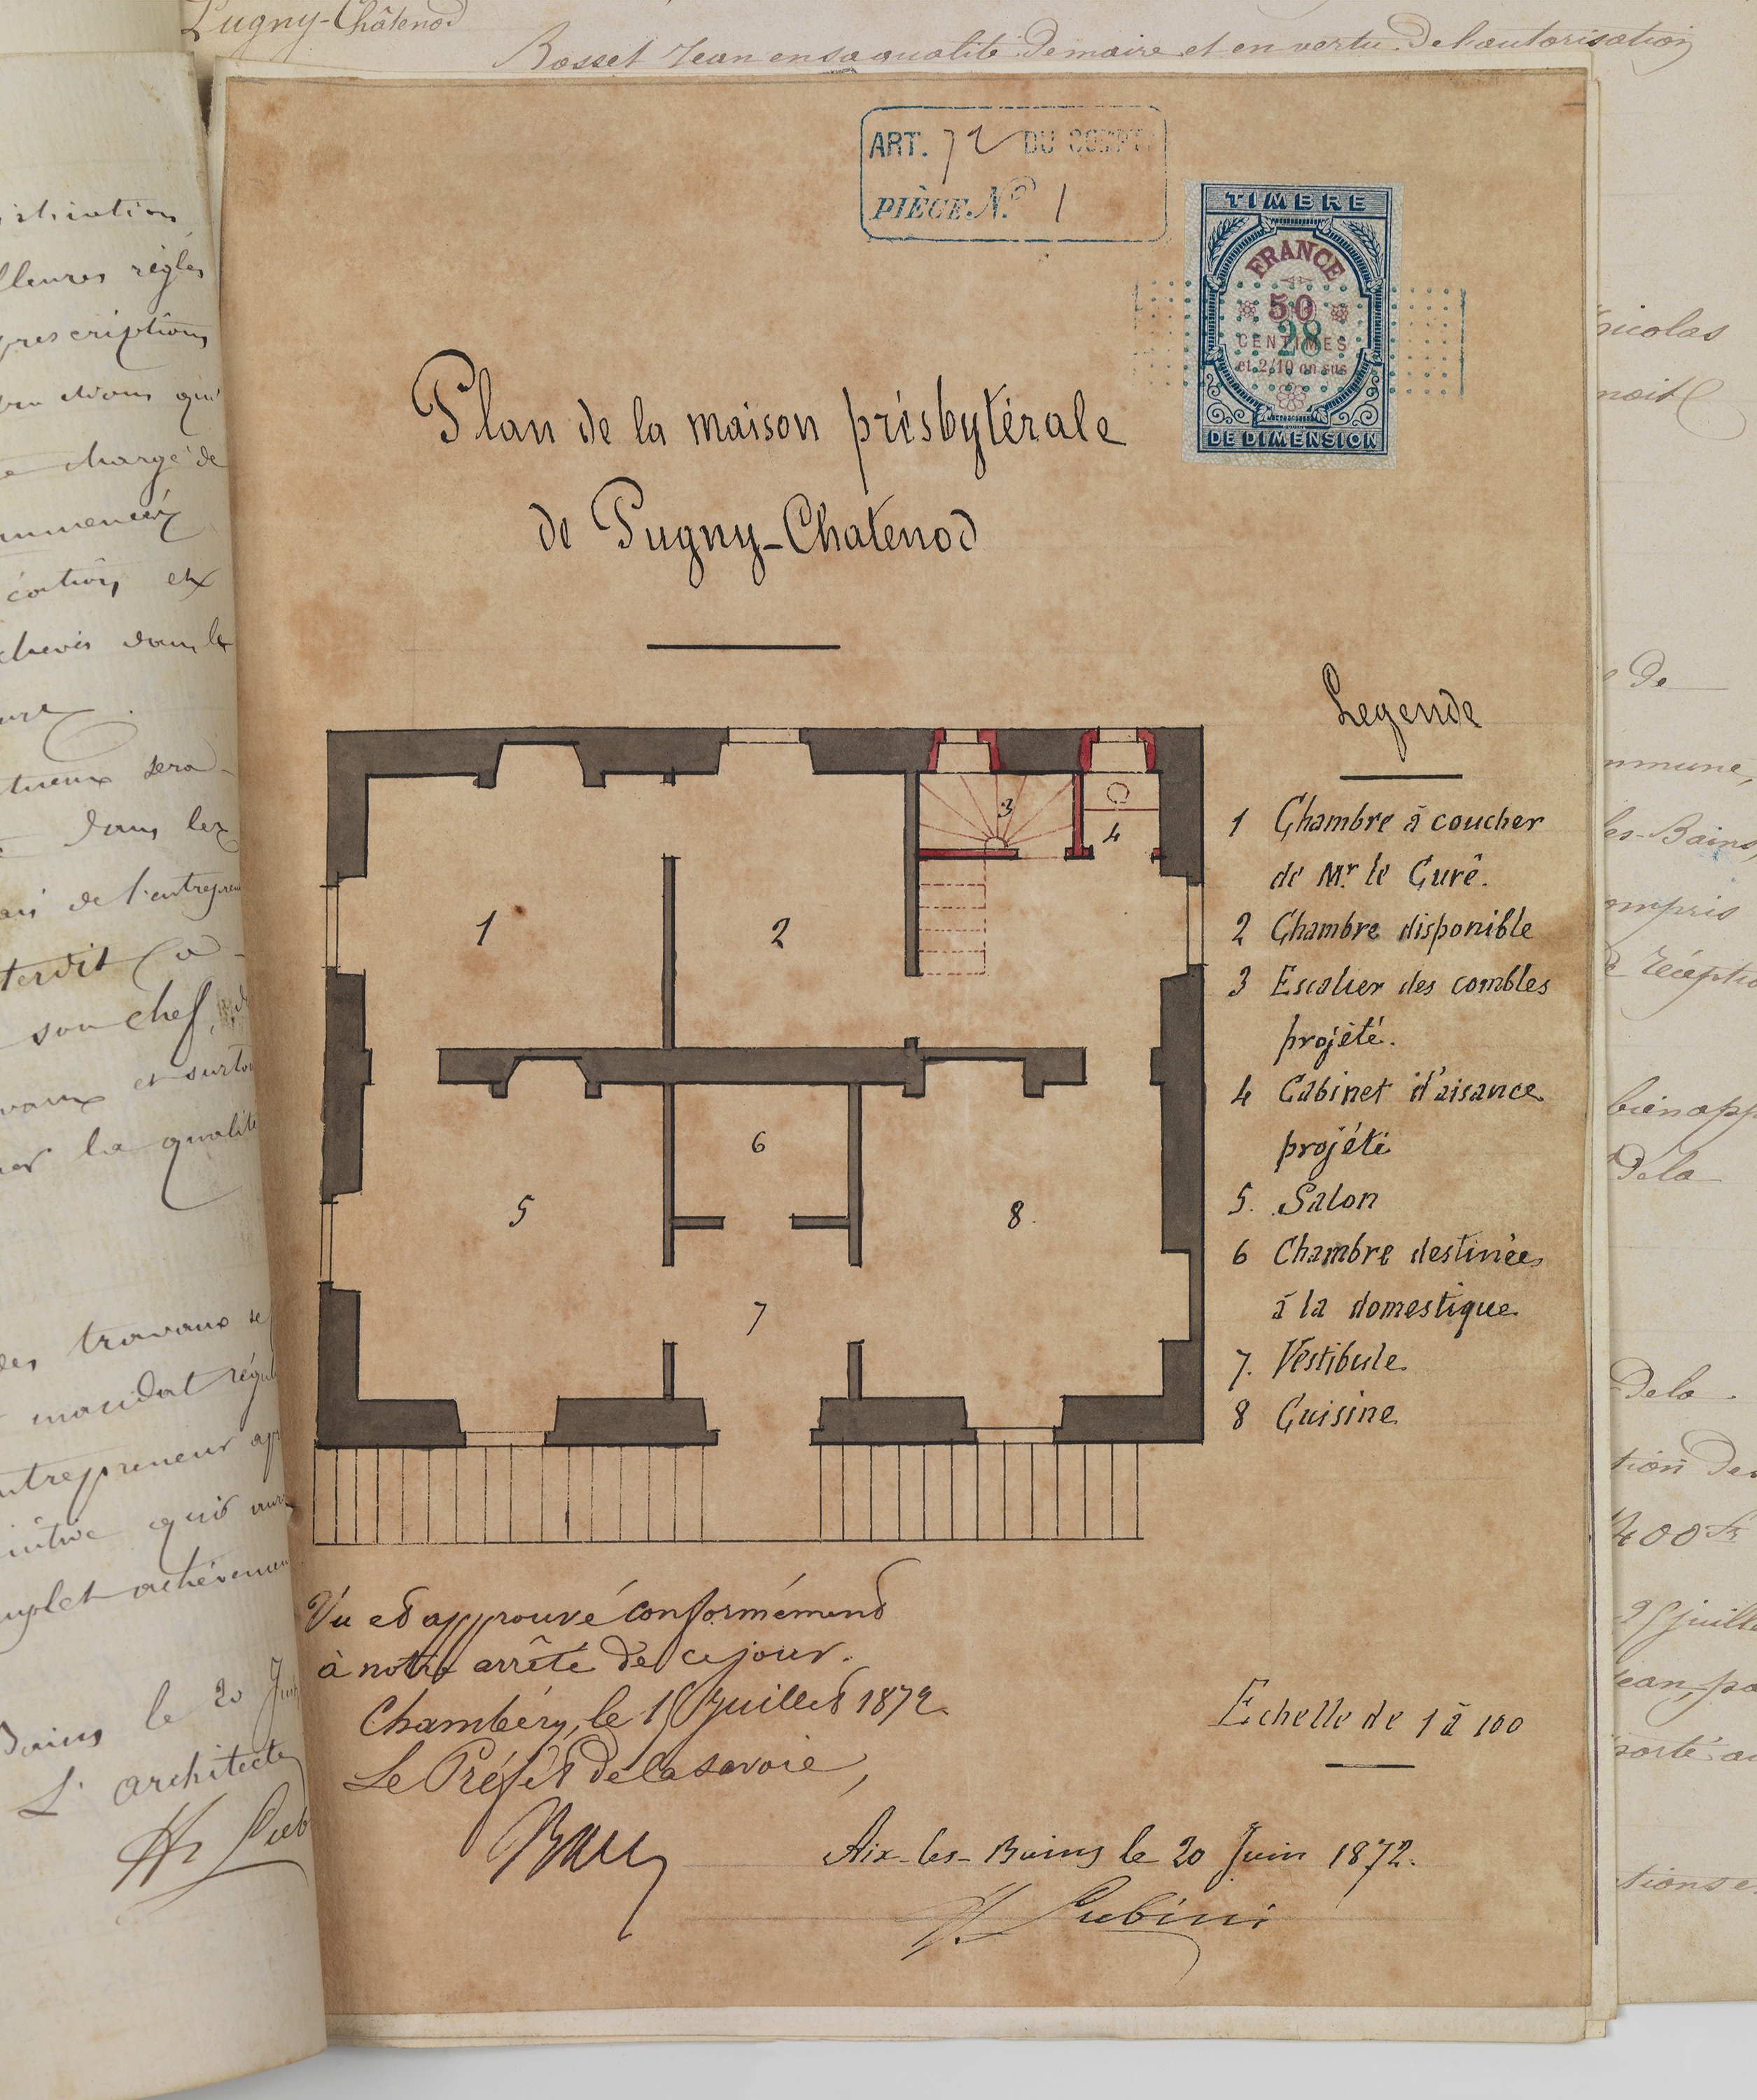 Pugny-Châtenod
Rosset Jean en sa qualité de maire et en vertu de l'autorisation
ART. 72 DU COMPTE
PIÈCE N.º 1
TIMBRE
FRANCE
50
28
CENTIMES
et 2/10 en sus
DE DIMENSION
Plan de la maison présbytérale
de Pugny-Chatenod
Legende
1 Chambre à coucher
de Mr. le Curé.
2 Chambre disponible
3 Escalier des combles
projété.
4 Cabinet d'aisance
projété
5. Salon
6 Chambre destinées
à la domestique
7. Véstibule
8 Cuisine
1
2
3
4
5
6
7
8.
Vu et approuvé conformément
à notre arrêté de ce jour.
Chambéry, le 15 Juillet 1872.
Le Préfet de la Savoie,
Echelle de 1 à 100
Aix-les-Bains le 20 Juin 1872.
règles
prescriptions
chargé de
et
dans le
sera
dans les
de l'entrepreneur
son chef
et surtout
la qualité
des travaux
mandat
entrepreneur
qui
Bains le 20 Juin
L'architecte
nicolas
noit
de
mmune,
les-Bains,
ompris
de réception
bien app
De la
De la
tion des
400 fr
25 juillet
ean, pa
porté au